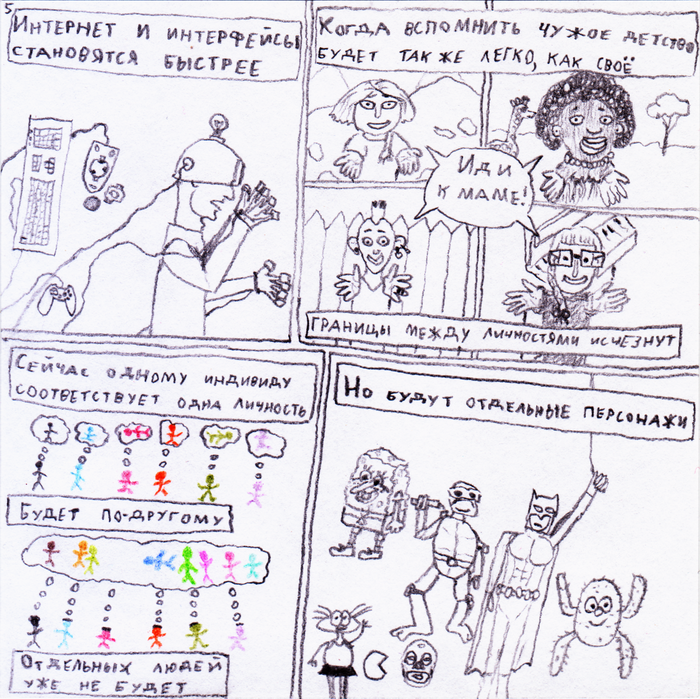 5.
Интернет и интерфейсы
становятся быстрее
Когда вспомнить чужое детство
будет так же легко, как своё
Иди
к маме!
Границы между личностями исчезнут
Сейчас одному индивиду
соответствует одна личность
Будет по-другому
Отдельных людей
уже не будет
Но будут отдельные персонажи